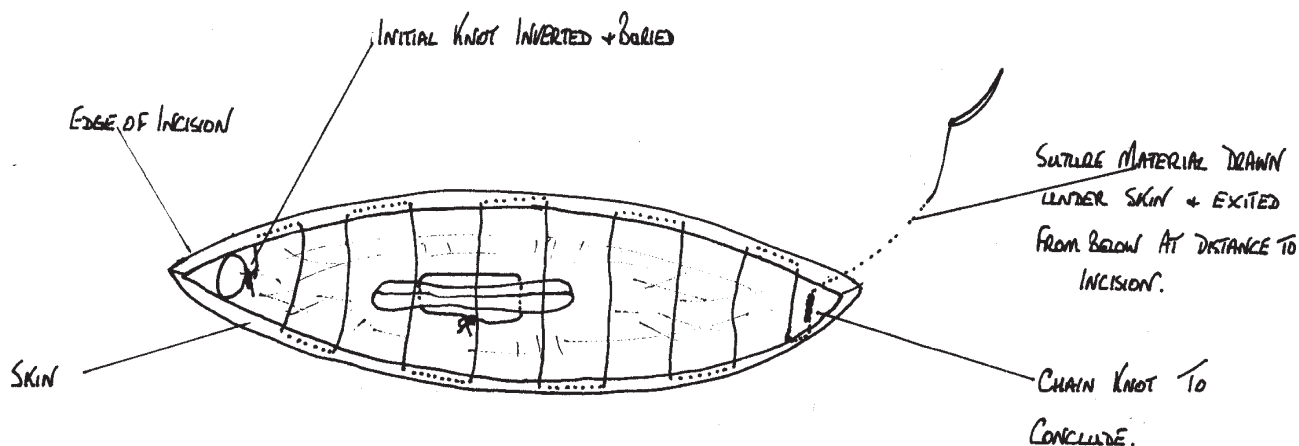 INITIAL KNOT INVERTED + BURIED
EDGE OF INCISION
SUTURE MATERIAL DRAWN
UNDER SKIN + EXITED
FROM BELOW AT DISTANCE TO
INCISION.
SKIN
CHAIN KNOT TO
CONCLUDE.